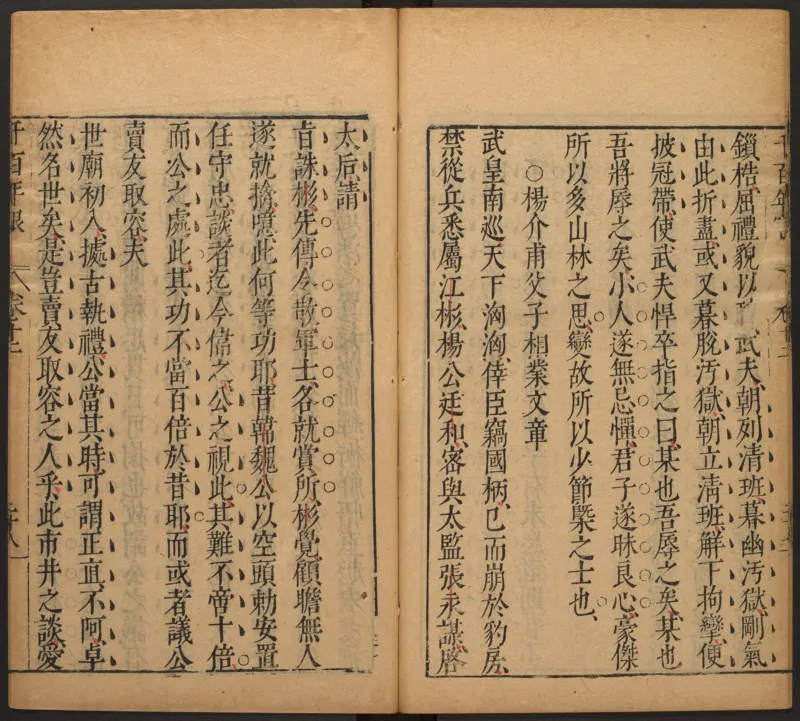 鎖梏屈禮貌以武夫朝列清班暮幽汚獄剛氣
由此折盡或又暮脫汚獄朝立清班解下拘攣便
披冠帶使武夫悍卒指之曰某也吾辱之矣某也
吾將辱之矣小人遂無忌憚君子遂昧良心豪傑
所以多山林之思變故所以少節槩之士也
○楊介甫父子相業文章
武皇南巡天下洶洶倖臣竊國柄已而崩於豹房
禁從兵悉屬江彬楊公廷和密與太監張永謀啓
太后請
旨誅彬先傳令散軍士各就賞所彬覺顧瞻無人
遂就擒噫此何等功耶昔韓魏公以空頭勅安置
任守忠談者迄今偉之公之視此其難不啻十倍
而公之處此其功不當百倍於昔耶而或者議公
賣友取容夫
世廟初入㩀古執禮公當其時可謂正直不阿卓
然名世矣是豈賣友取容之人乎此市井之談愛
千百年眼 卷十二 二十八